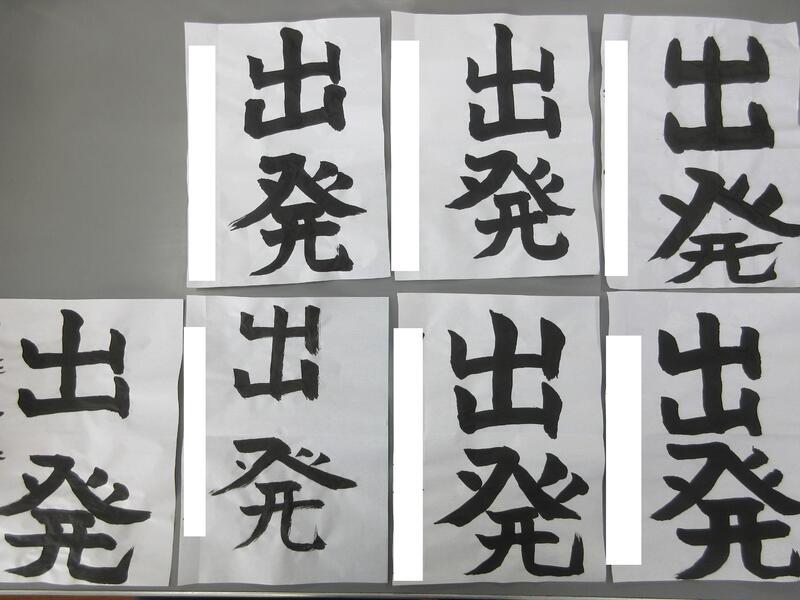 出発
出発
出発
出発
出発
出発
出発